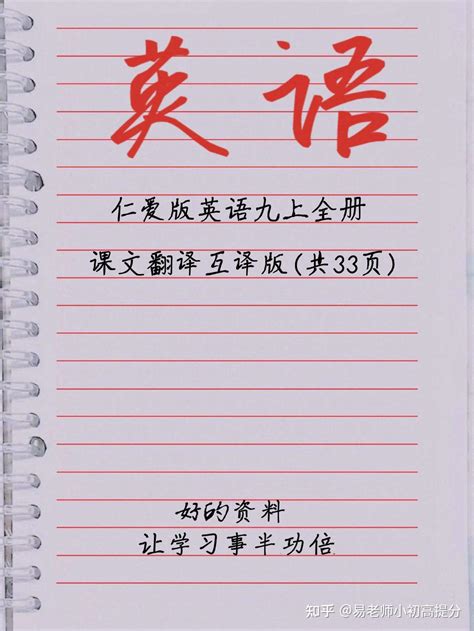 英语
仁爱版英语九上全册
课文翻译互译版(共33页)
好的资料
让学习事半功倍
知乎 @易老师小初高提分